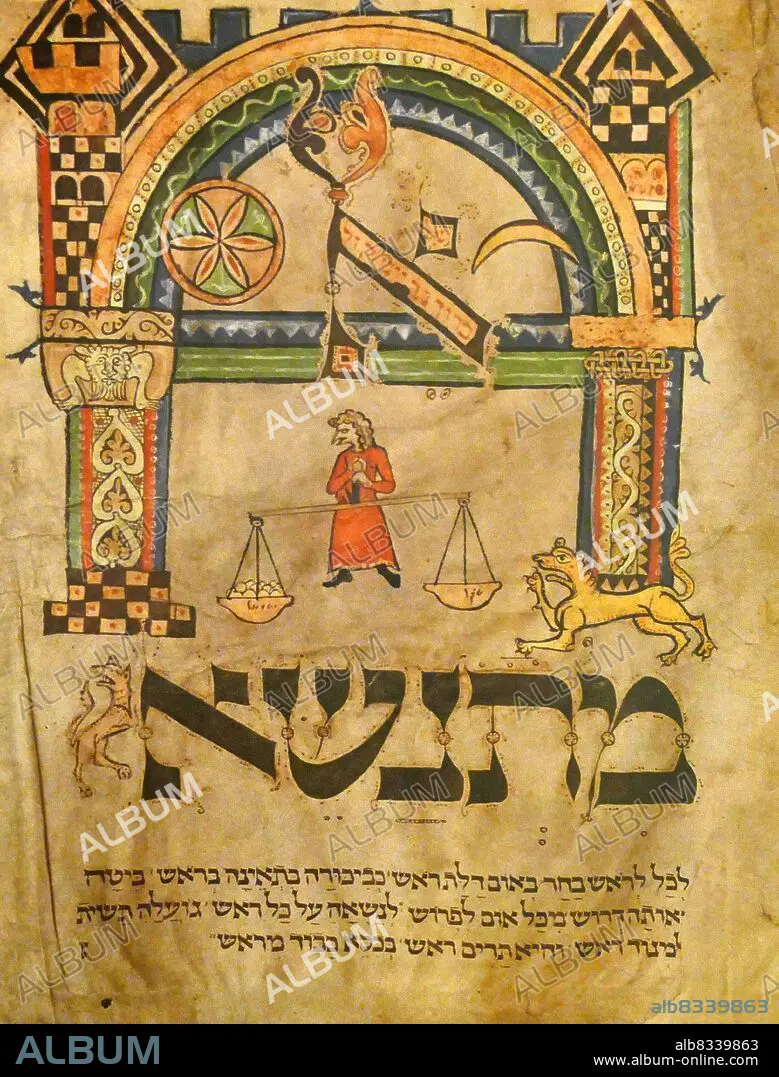 אל
מתנשא
לכל לראש בחר באום דלת ראש כביכורה בתאינה בראש ביטה
אותה דרוש מכל אום לפרוש לנשאה על כל ראש גועלה תשית
למנוד ראש והיא תרים ראש מראש
ALBUM
alb8339863
ALBUM
alb8339863
www.album-online.com